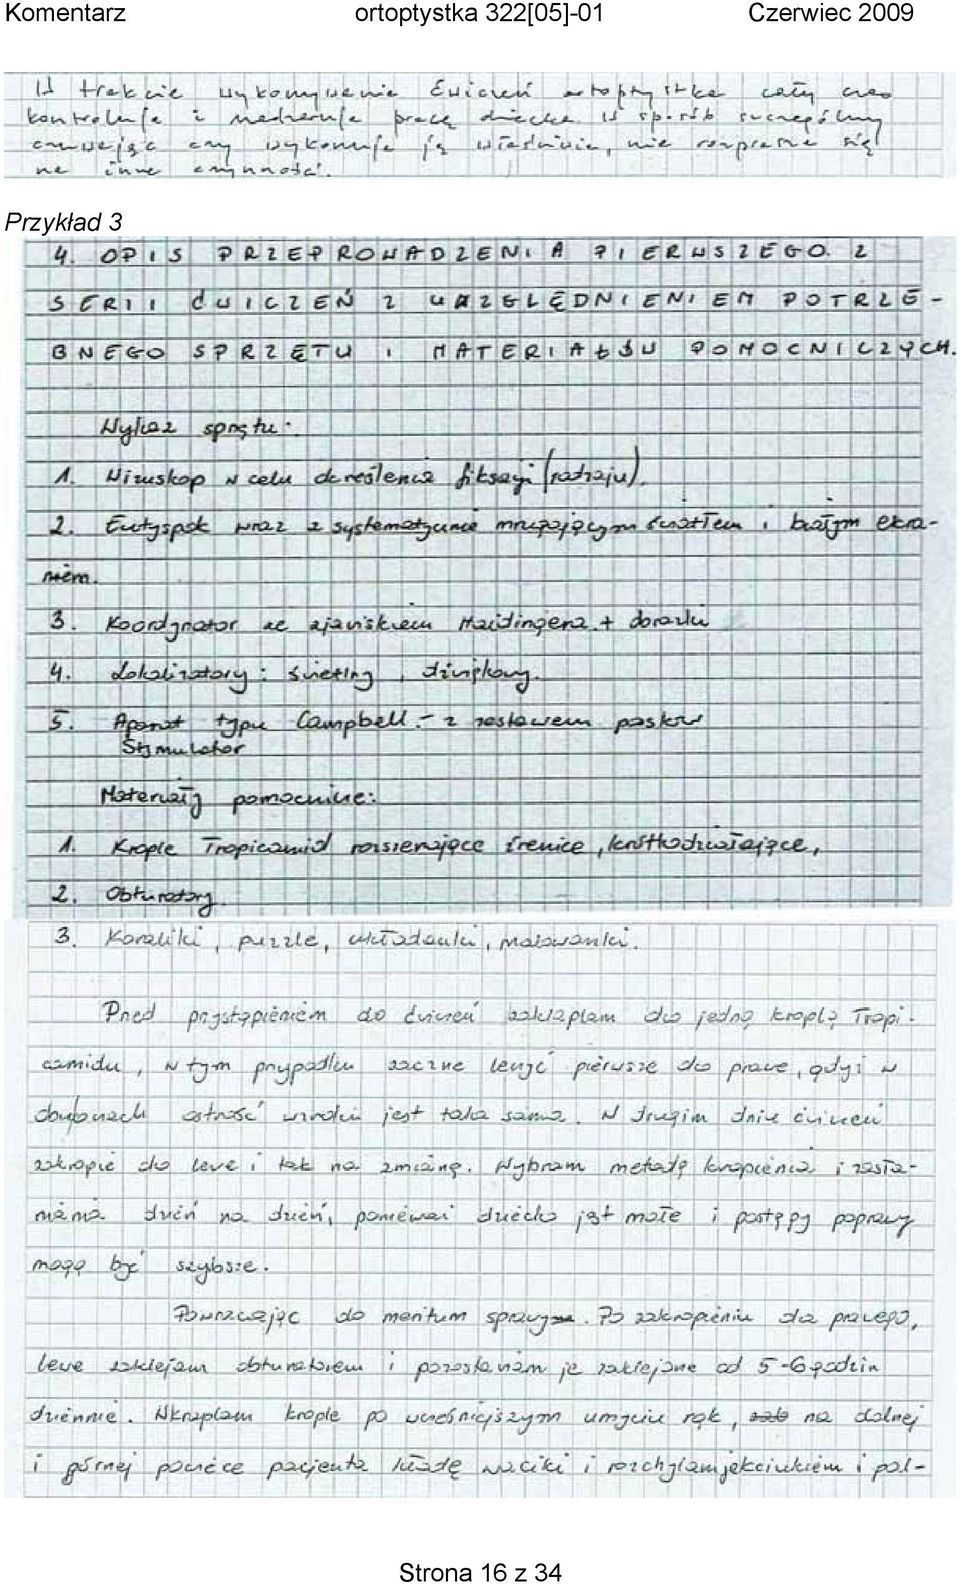 Komentarz ortoptystka 322[05]-01 Czerwiec 2009
W trakcie wykonywania ćwiczeń ortoptystka cały czas
kontroluje i nadzoruje pracę dziecka w sposób szczególny
czuwając czy wykonuje ją właściwie, nie rozprasza się
na inne czynności.
Przykład 3
4. OPIS PRZEPROWADZENIA PIERWSZEGO Z
SERII ĆWICZEŃ Z UWZGLĘDNIENIEM POTRZE-
BNEGO SPRZĘTU I MATERIAŁÓW POMOCNICZYCH.
Wykaz sprzętu:
1. Wizuskop w celu określenia fiksacji (rodzaju).
2. Eutyspok wraz z systematycznie mrugającym światłem i białym ekra-
nem.
3. Koordynator ze zjawiskiem Haidingera +
4. Lokalizatory: świetlny, dźwiękowy.
5. Aparat typu Campbell - z zestawem pasków
Stymulator
Materiały pomocnicze:
1. Krople Tropicamid rozszerzające źrenice, krótkodziałające,
2. Obturatory.
3. Koraliki, puzzle, układanki, malowanki.
Przed przystąpieniem do ćwiczeń zakraplam do jedną kroplę Tropi-
camidu, w tym przypadku zacznę leczyć pierwsze oko prawe, gdyż w
obydwoch ostrość wzroku jest taka sama. W drugim dniu ćwiczeń
zakropię do lewe i tak na zmianę. Wybram metodę kropienia i zasła-
niania dzień na dzień, ponieważ dziecko jest małe i postępy poprawy
mogą być szybsze.
Powracając do meritum sprawy. Po zakropieniu oka prawego,
lewe zaklejam obturatorem i pozostawiam je zaklejone od 5-6 godzin
dziennie. Wkraplam krople po wcześniejszym umyciu rąk, na dolnej
i górnej powiece pacjenta kładę waciki i rozchylam je kciukiem i pal-
Strona 16 z 34